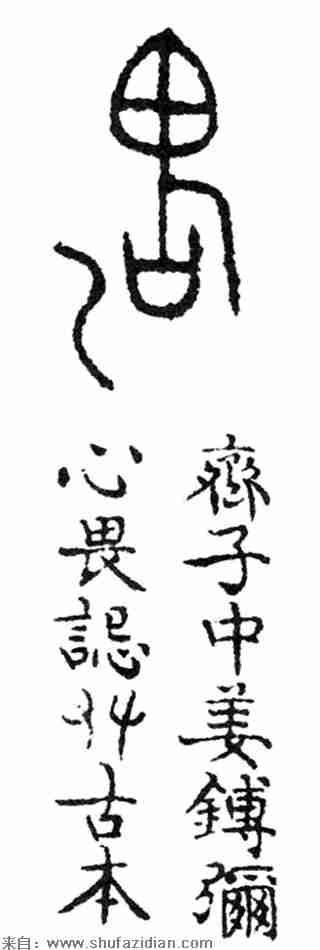 齊子中姜鎛彌
心畏誋古本
来自：www.shufazidian.com